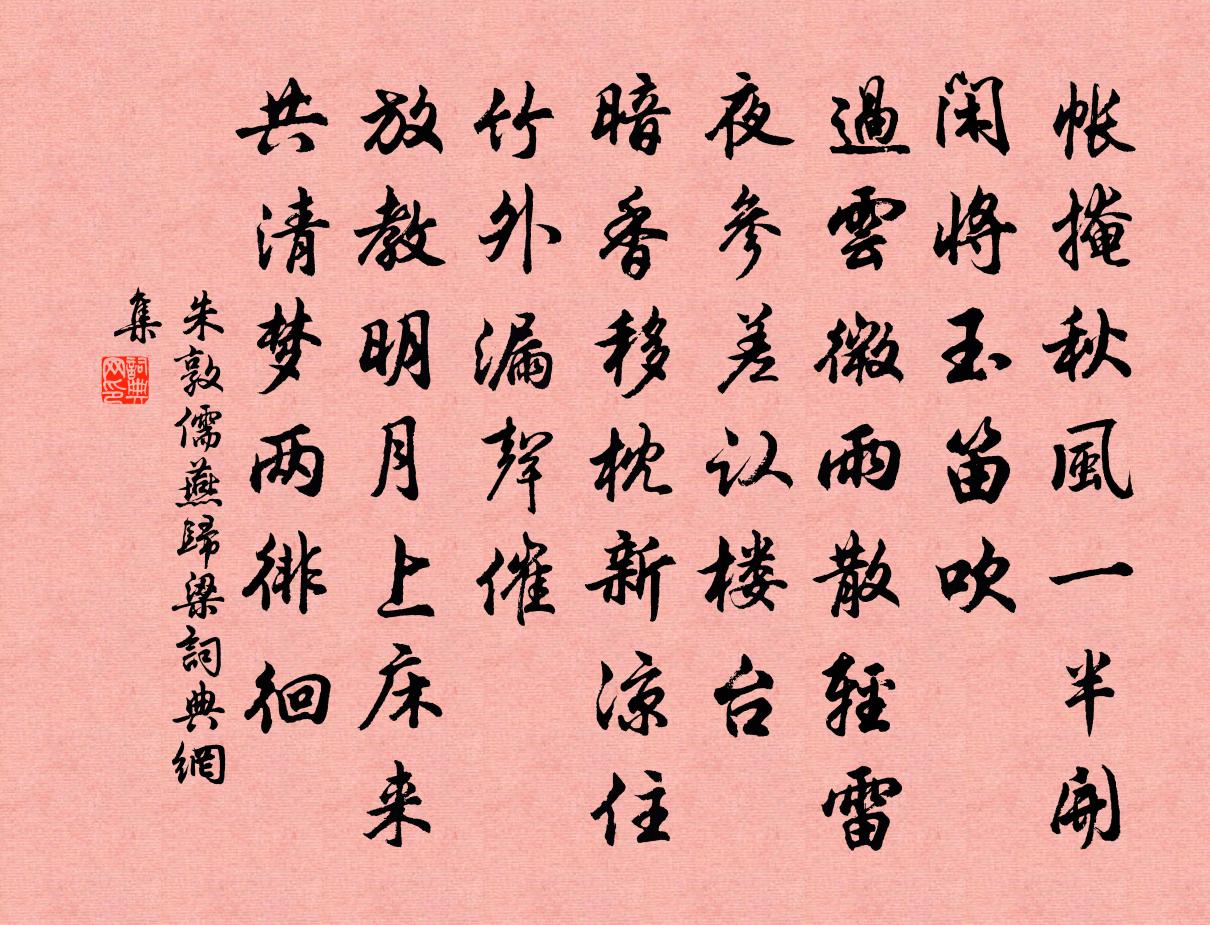 帐掩秋風一半開
闲将玉笛吹
過雲微雨散輕雷
夜參差认楼台
暗香移枕新凉住
竹外漏聲催
放教明月上床来
共清梦两徘徊
朱敦儒燕歸梁詞典網
集
詞典网印